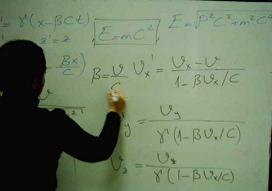 ' = γ(x - βct)
z' = z
E = mc²
E = √P²C² + m²C
- βx/c)
β = v/c
Ux' = Ux - v / 1 - βUx/c
y = Uy / γ(1 - βUx/c)
Uz / γ(1 - βUx/c)